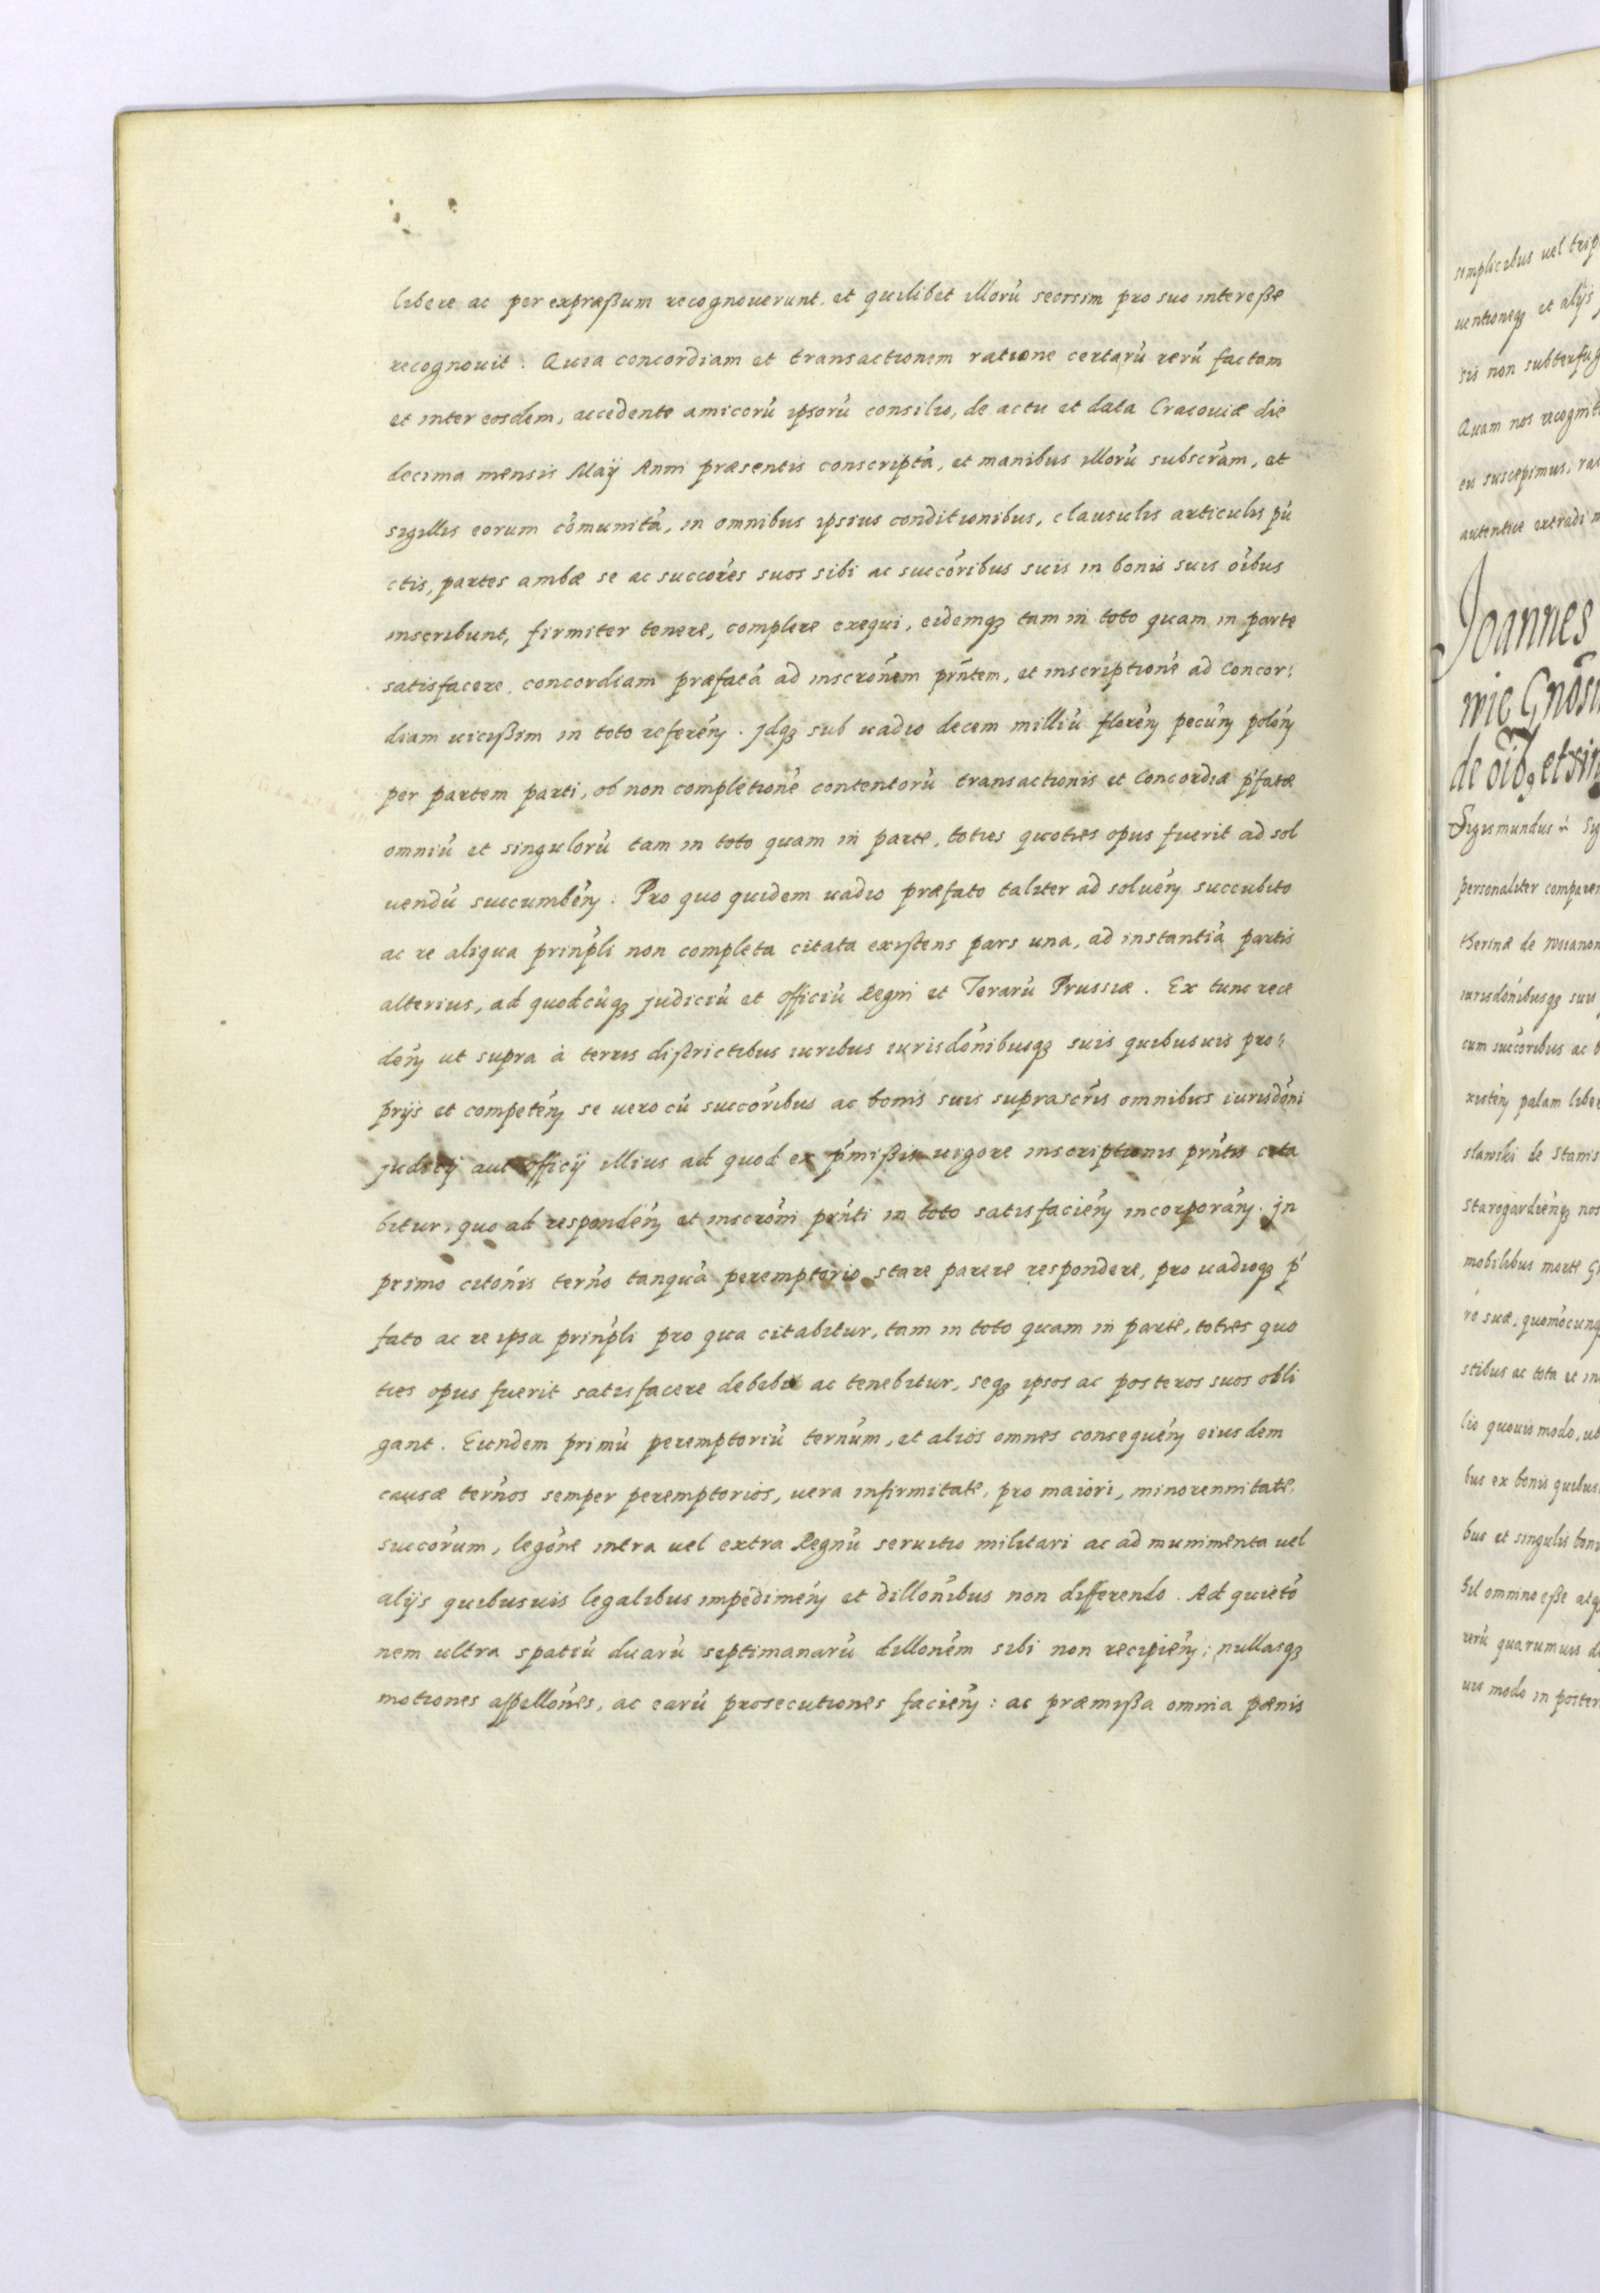 libere ac per expræßum recognouerunt, et quilibet illorũ seorsim pro suo intereße
recognouit. Quia concordiam et transactionem ratione certarũ rerũ factam
et inter eosdem, accedente amicorũ ipsorũ consilio, de actu et data Cracouiæ die
decima mensis Maÿ Anni præsentis conscriptã, et manibus illorũ subscr̃am, et
sigillis eorum cõmunitã, in omnibus ipsius conditionibus, clausulis articulis pũ
ctis, partes ambæ se ac succõres suos sibi ac succõribus suis in bonis suis õibus
inscribunt, firmiter tenere, complere exequi, eidemqȝ tam in toto quam in parte
satisfacere, concordiam præfatã ad inscrõnem prñtem, et inscriptionẽ ad Concor:
diam vicißim in toto referẽn. Jdqȝ sub vadio decem milliũ florẽn pecũn polõn
per partem parti, ob non completionẽ contentorũ transactionis et Concordiæ p̃fatæ
omniũ et singulorũ tam in toto quam in parte, toties quoties opus fuerit ad sol
uendũ succumbẽn. Pro quo quidem vadio præfato taliter ad soluẽn succubito
ac re aliqua prinp̃li non completa citata existens pars una, ad instantiã partis
alterius, ad quodcũqȝ judiciũ et officiũ Regni et Terarũ Prussiæ. Ex tunc rece
dẽn ut supra à terris districtibus iuribus iurisdõnibusqȝ suis quibusuis pro:
prijs et competẽn se vero cũ succõribus ac bonis suis suprascr̃is omnibus iurisdõni
judicÿ aut officÿ illius ad quod ex p̃mißis vigore inscriptionis prñtis cita
bitur, quo ad respondẽn et inscrõni prñti in toto satisfaciẽn incorporãn. Jn
primo citõnis ter̃no tanquã peremptorio stare parere respondere, pro vadioqȝ p̃
fato ac re ipsa prinp̃li pro qua citabitur, tam in toto quam in parte, toties quo
ties opus fuerit satisfacere debebit ac tenebitur, seqȝ ipsos ac posteros suos obli
gant. Eundem primũ peremptoriũ ter̃num, et alios omnes consequẽn eiusdem
causæ ter̃nos semper peremptorios, vera infirmitate, pro maiori, minorennitate
succõrum, legõne intra vel extra Regnũ seruitio militari ac ad munimenta vel
alijs quibusuis legalibus impedimẽn et dillõnibus non differendo. Ad quietõ
nem ultra spatiũ duarũ septimanarũ dillonẽm sibi non recipiẽn, nullasqȝ
motiones appellõnes, ac earũ prosecutiones faciẽn: ac præmißa omnia pænis
simplicibus vel trip
uentioneqȝ et alijs
sis non subterfug
Quam nos recogniti
eu suscepimus, ra
autentice
Joannes
de õibȝ et sin
Sigismundus
personaliter comparen
therinæ de
iurisdõnibusqȝ suis
cum succõribus ac b
palam libe
slawski de Stanis
nos
mobilibus morte
stibus ac tota et in
lio quouis modo, ub
bus ex bonis quibus
bus et singulis boni
hil omnino eße atqȝ
rerũ quarumuis
uis modo in poster